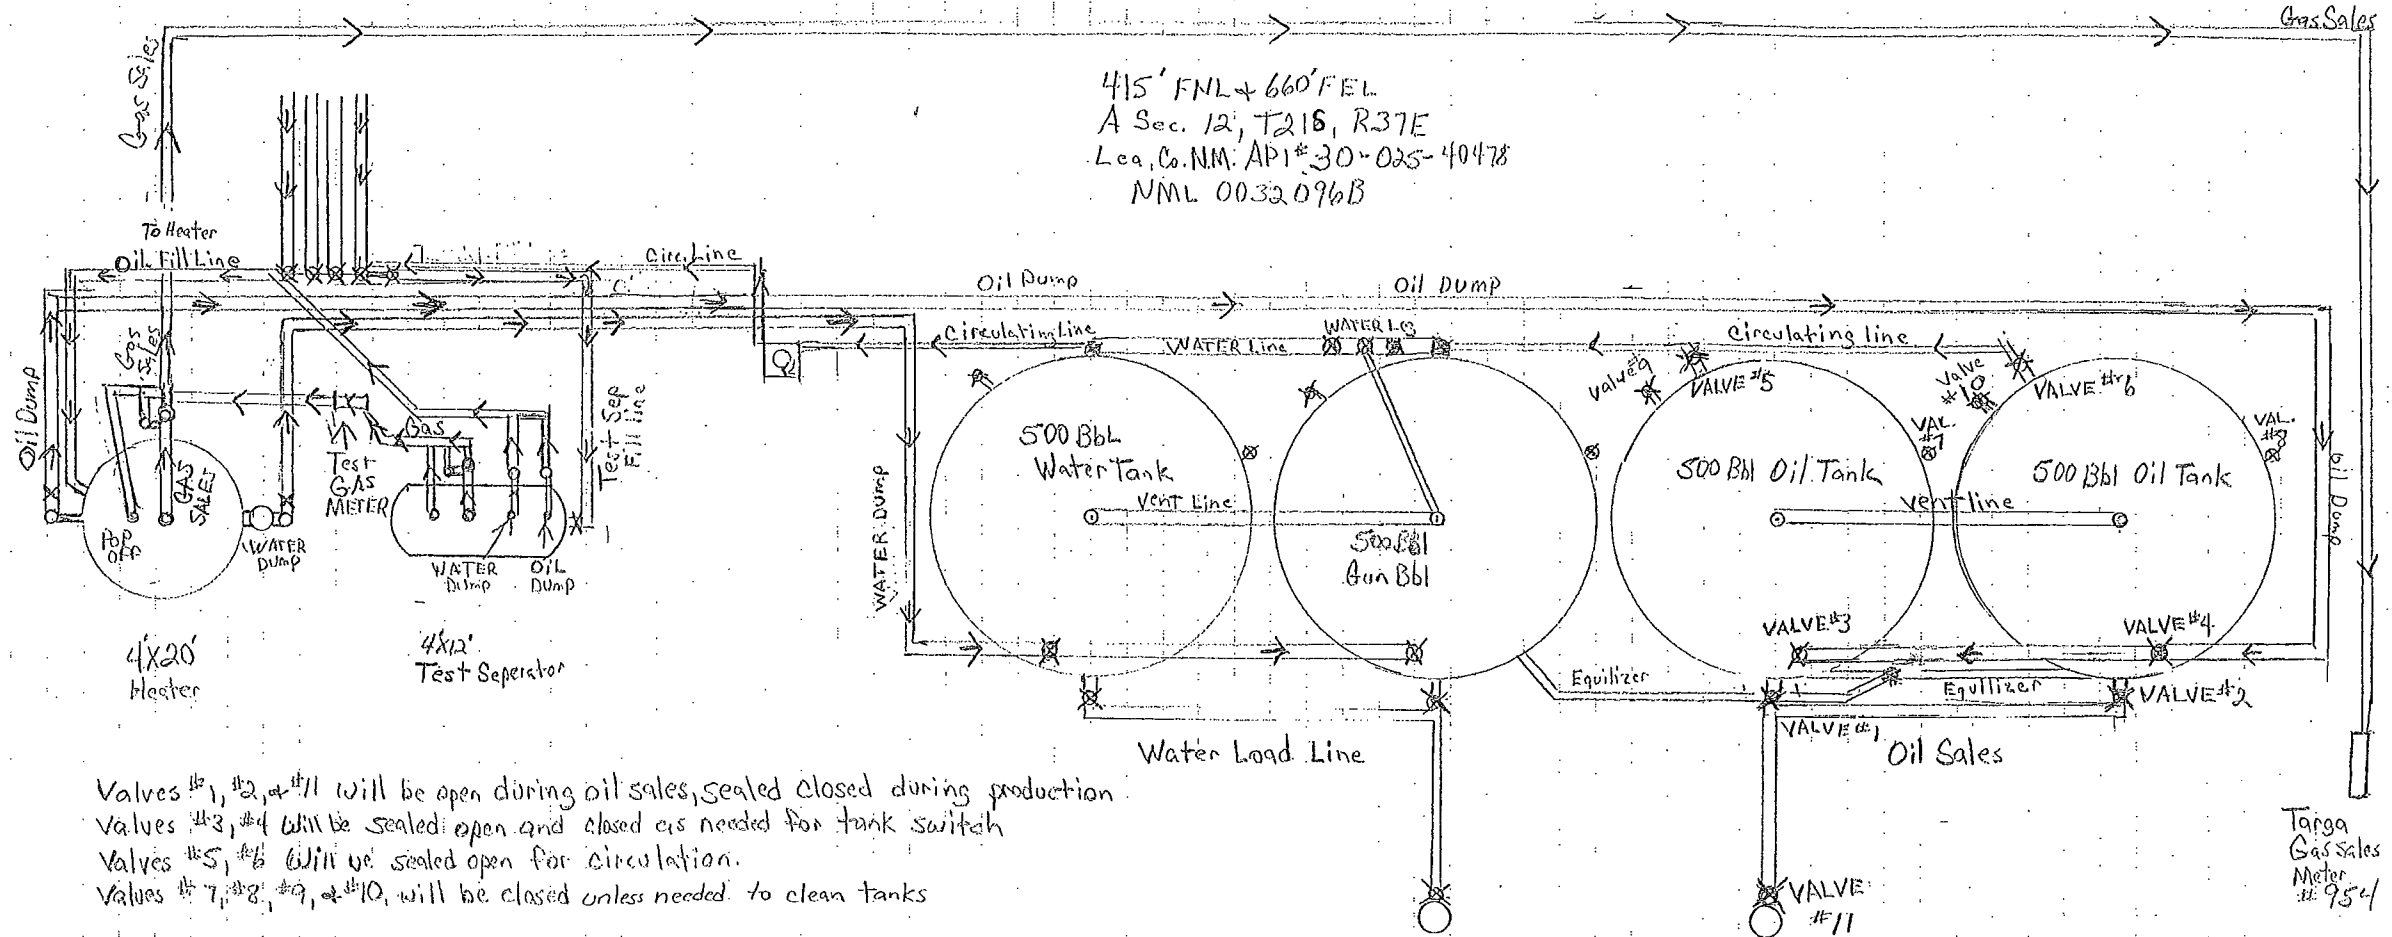 Gas Sales
Gas Sales
415' FNL & 660' FEL
A Sec. 12, T21S, R37E
Lea, Co. N.M. API # 30-025-40478
NML 0032096B
To Heater
Oil Fill Line
Circ. Line
Oil Dump
Oil Dump
Circulating Line
WATER Line
WATER LEG
Circulating line
Valve #9
VALVE #5
Valve #10
VALVE #6
VAL. #7
VAL. #8
Gas Sales
Oil Dump
Gas
Test Sep Fill Line
Test GAS METER
GAS SALES
POP OFF
WATER DUMP
WATER Dump
OIL DUMP
WATER DUMP
500 BbL
Water Tank
Vent Line
500 Bbl
Gun Bbl
500 Bbl Oil Tank
500 Bbl Oil Tank
Vent line
Oil Dump
4'X20'
Heater
4'X12'
Test Seperator
VALVE #3
VALVE #4
Equilizer
Equilizer
VALVE #2
VALVE #1
Water Load Line
Oil Sales
Valves #1, #2, & #11 will be open during oil sales, sealed closed during production
Valves #3, #4 will be sealed open and closed as needed for tank switch
Valves #5, #6 will be sealed open for circulation.
Valves #7, #8, #9, & #10, will be closed unless needed to clean tanks
VALVE
#11
Targa
Gas Sales
Meter
# 954